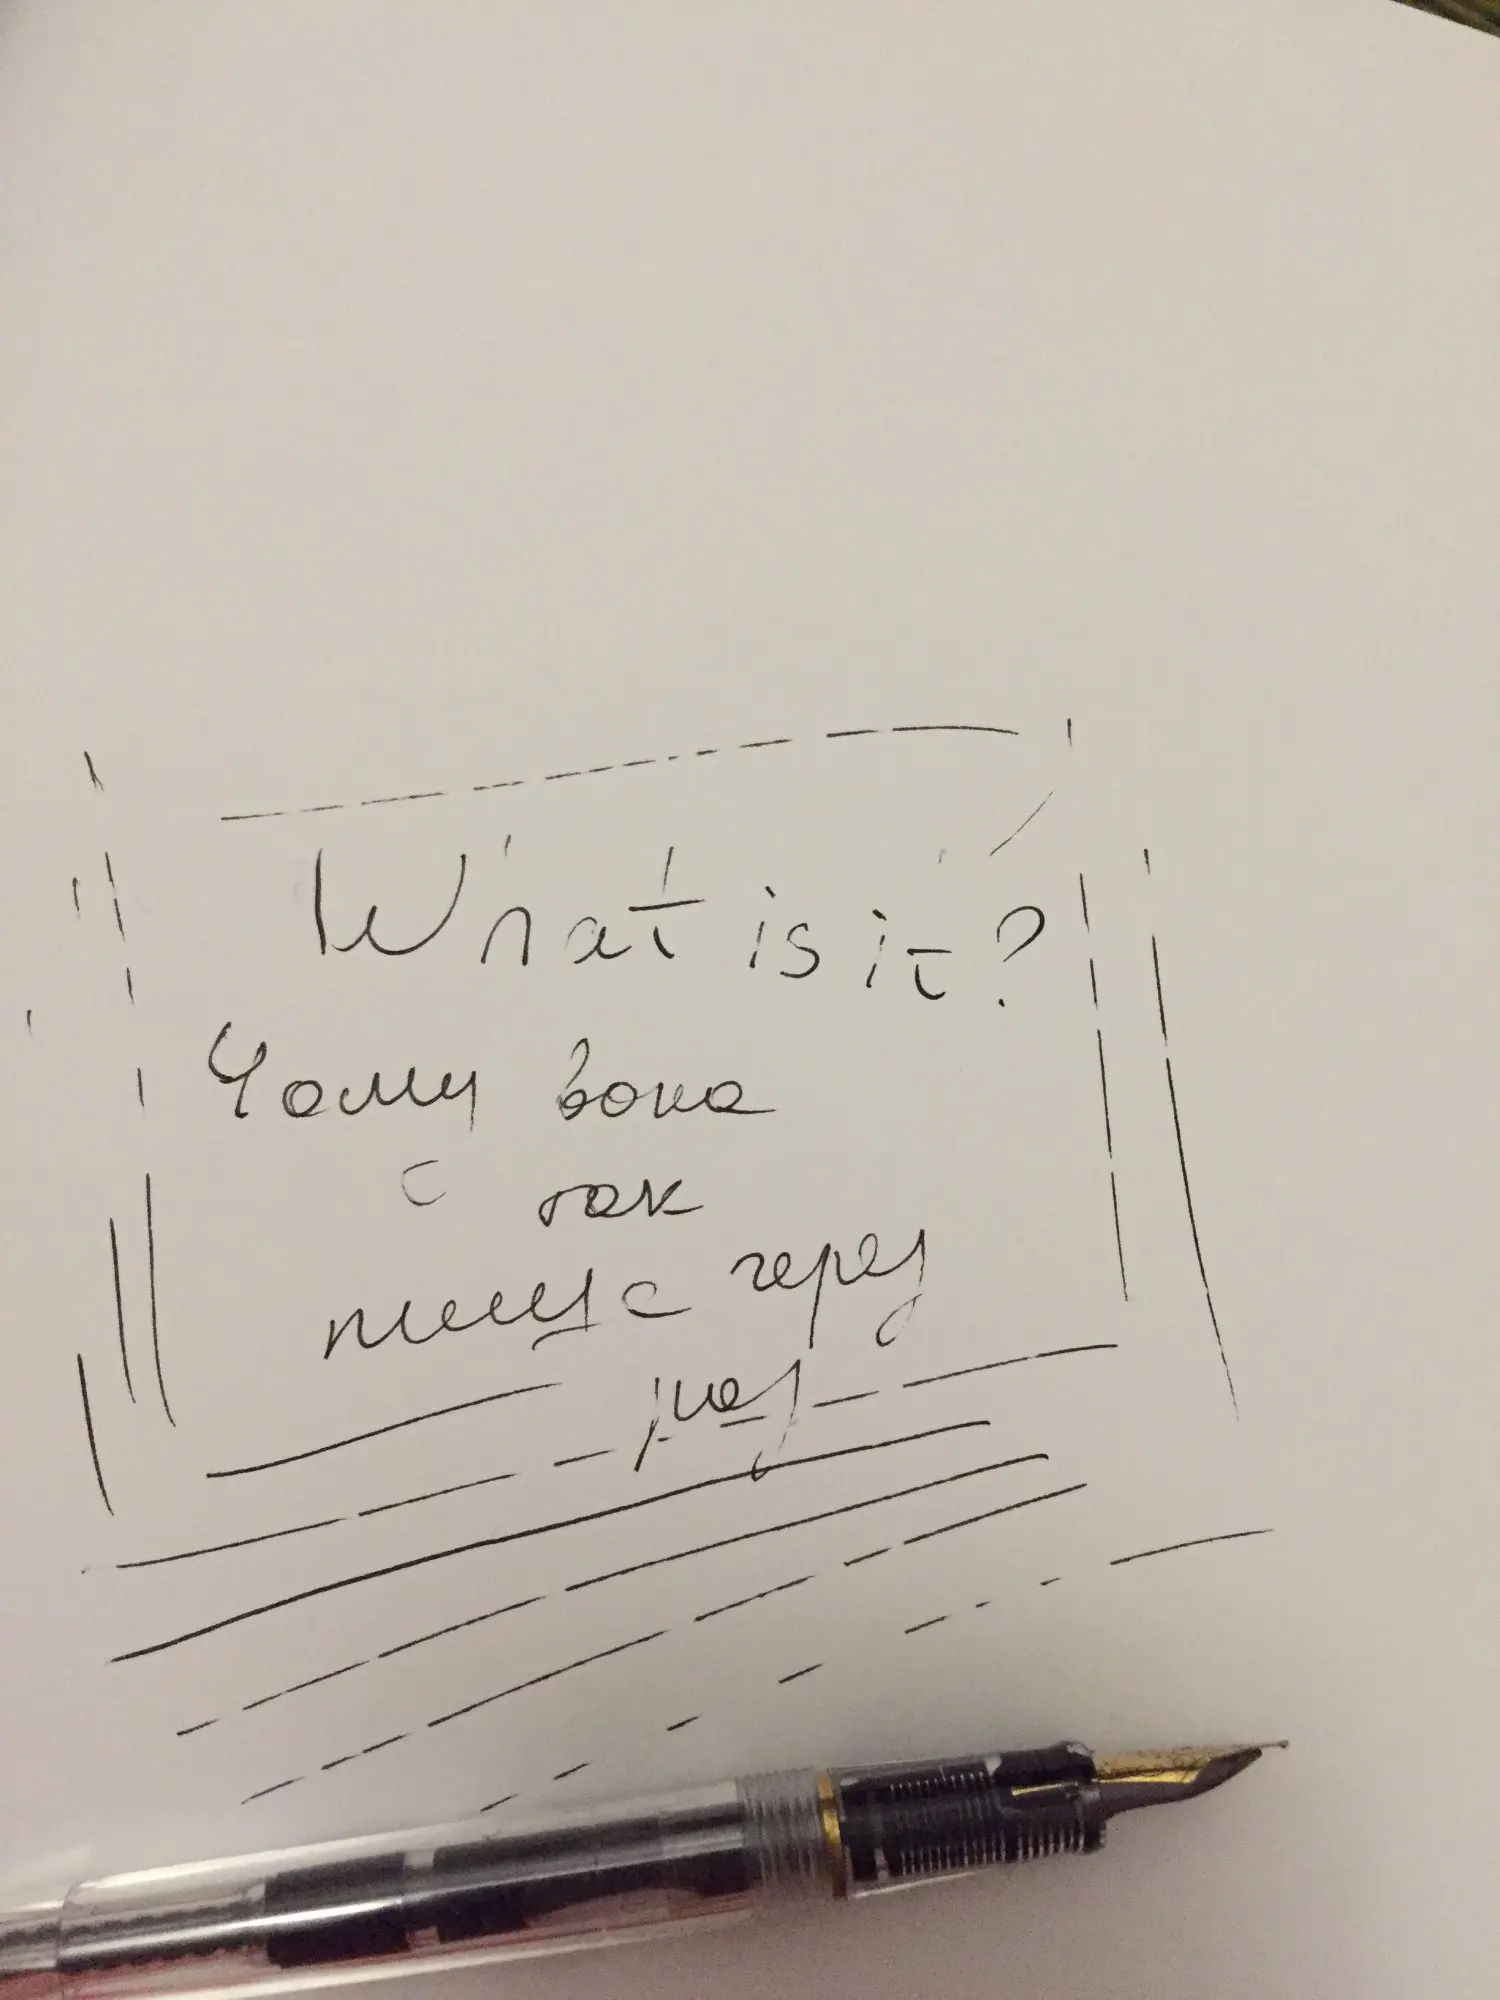 What is it?
Чому вона
так
пише через
раз